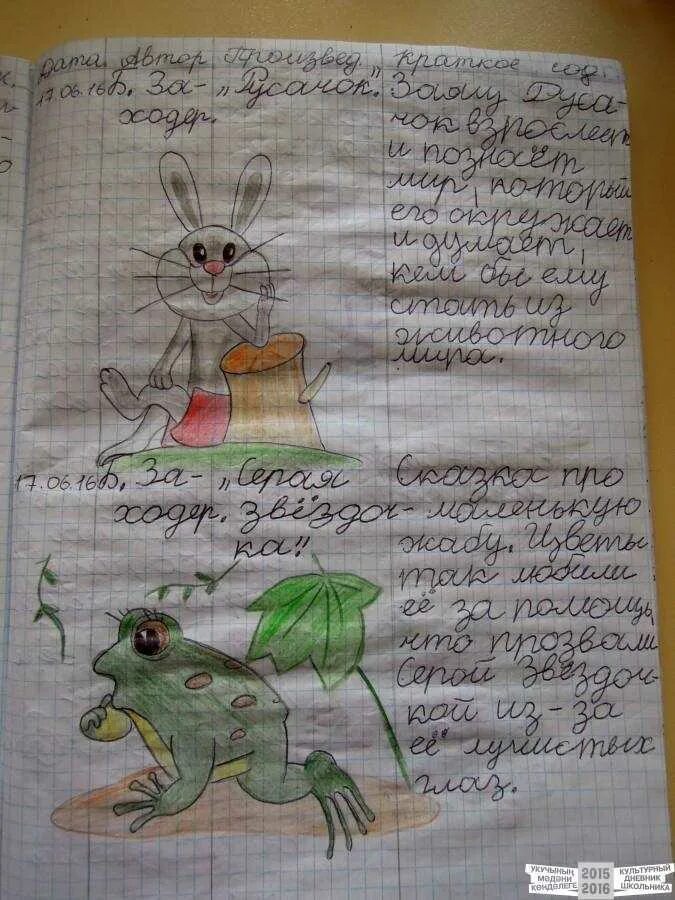 Дата Автор Произвед. Краткое сод.
17.06.16 Б. За-
ходер.
„Русачок."
Заяц Руса-
чок взрослеет
и познаёт
мир, который
его окружает
и думает,
кем бы ему
стать из
животного
мира.
17.06.16 Б. За-
ходер.
„Серая
звёздоч-
ка"
Сказка про
маленькую
жабу. Цветы
так любили
её за помощь,
что прозвали
Серой Звёздоч-
кой из-за
её лучистых
глаз.
УКУЧЫНЫҢ
МӘДӘНИ
КӨНДӘЛЕГЕ
2015
2016
КУЛЬТУРНЫЙ
ДНЕВНИК
ШКОЛЬНИКА